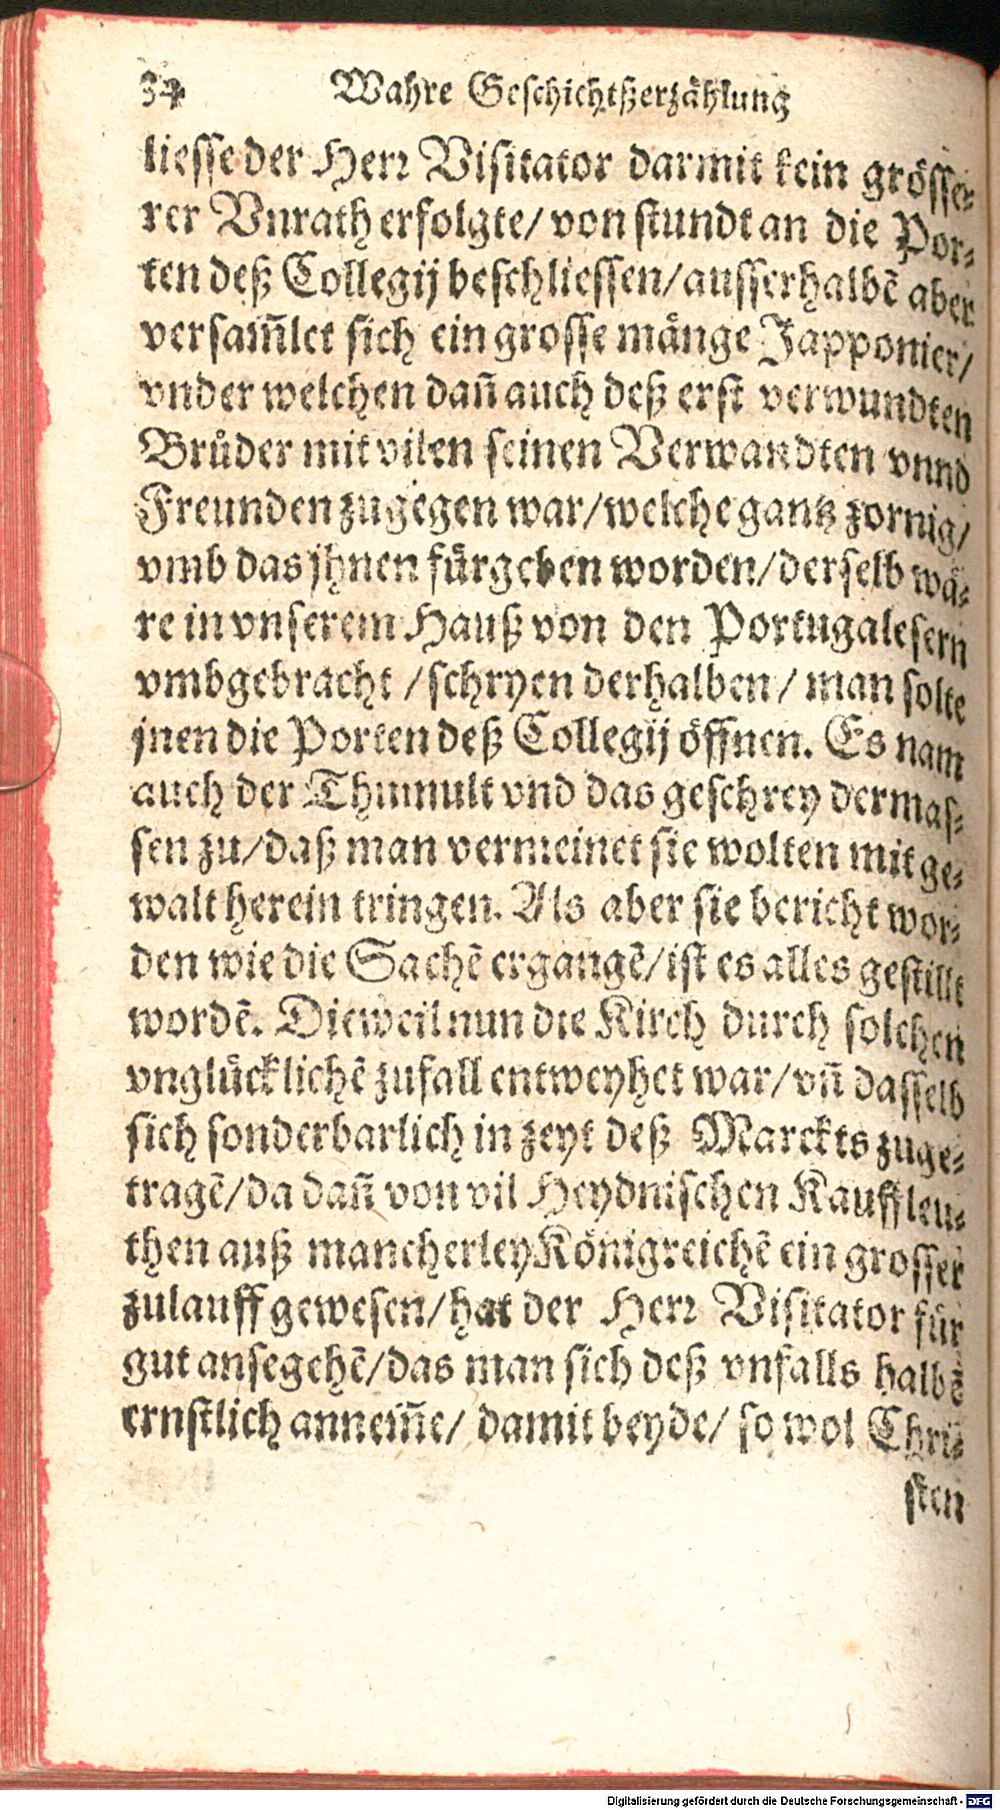 34 Wahre Geschichtßerzählung
liesse der Herr Visitator darmit kein grösse-
rer Vnrath erfolgte/ von stundt an die Por-
ten deß Collegij beschliessen/ ausserhalbē aber
versam̄let sich ein grosse mänge Japponier/
vnder welchen dañ auch deß erst verwundten
Brůder mit vilen seinen Verwandten vnnd
Freunden zugegen war/ welche gantz zornig/
vmb das jhnen fürgeben worden/ derselb wä-
re in vnserem Hauß von den Portugalesern
vmbgebracht / schryen derhalben/ man solte
jnen die Porten deß Collegij öffnen. Es nam
auch der Thumult vnd das geschrey dermas-
sen zu/ daß man vermeinet sie wolten mit ge-
walt herein tringen. Als aber sie bericht wor-
den wie die Sachē ergangē/ ist es alles gestillt
wordē. Dieweil nun die Kirch durch solchen
vnglücklichē zufall entweyhet war/ vñ dasselb
sich sonderbarlich in zeyt deß Marckts zuge-
tragē/ da dañ von vil Heydnischen Kauffleu-
then auß mancherley Königreichē ein grosser
zulauff gewesen/ hat der Herr Visitator für
gut ansegehē/ das man sich deß vnfalls halbē
ernstlich annem̄e/ damit beyde/ so wol Chri-
sten
Digitalisierung gefördert durch die Deutsche Forschungsgemeinschaft - DFG